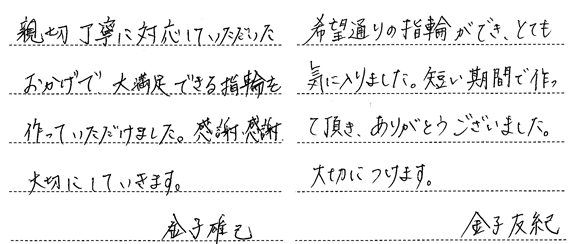 親切丁寧に対応していただいた
おかげで大満足できる指輪を
作っていただけました。感謝感謝
大切にしていきます。
金子雄己
希望通りの指輪ができ、とても
気に入りました。短い期間で作っ
て頂き、ありがとうございました。
大切につけます。
金子友紀